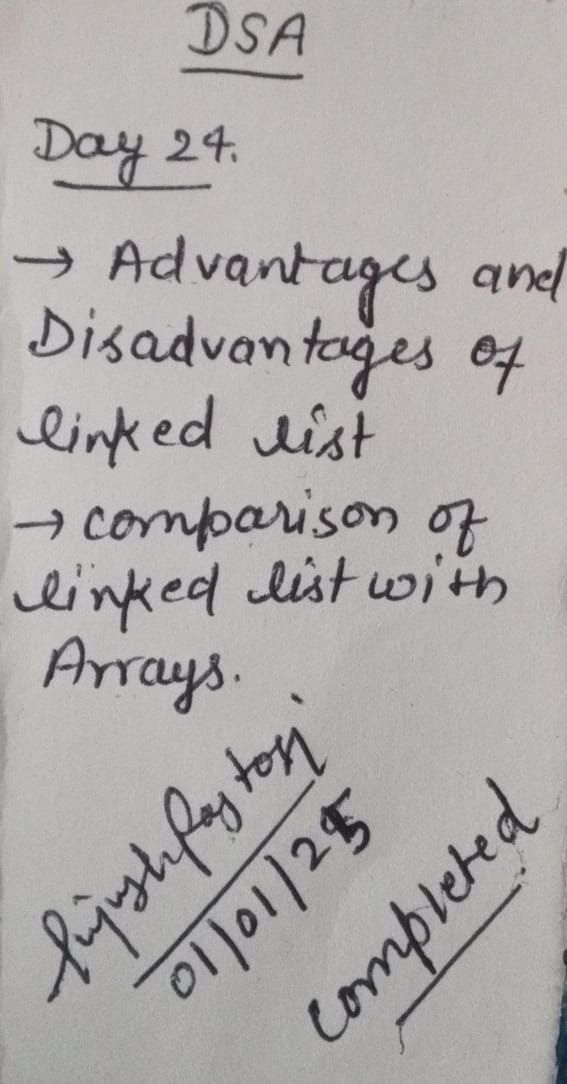 DSA
Day 24.
→ Advantages and
Disadvantages of
linked list
→ comparison of
linked list with
Arrays.
01/01/25
completed